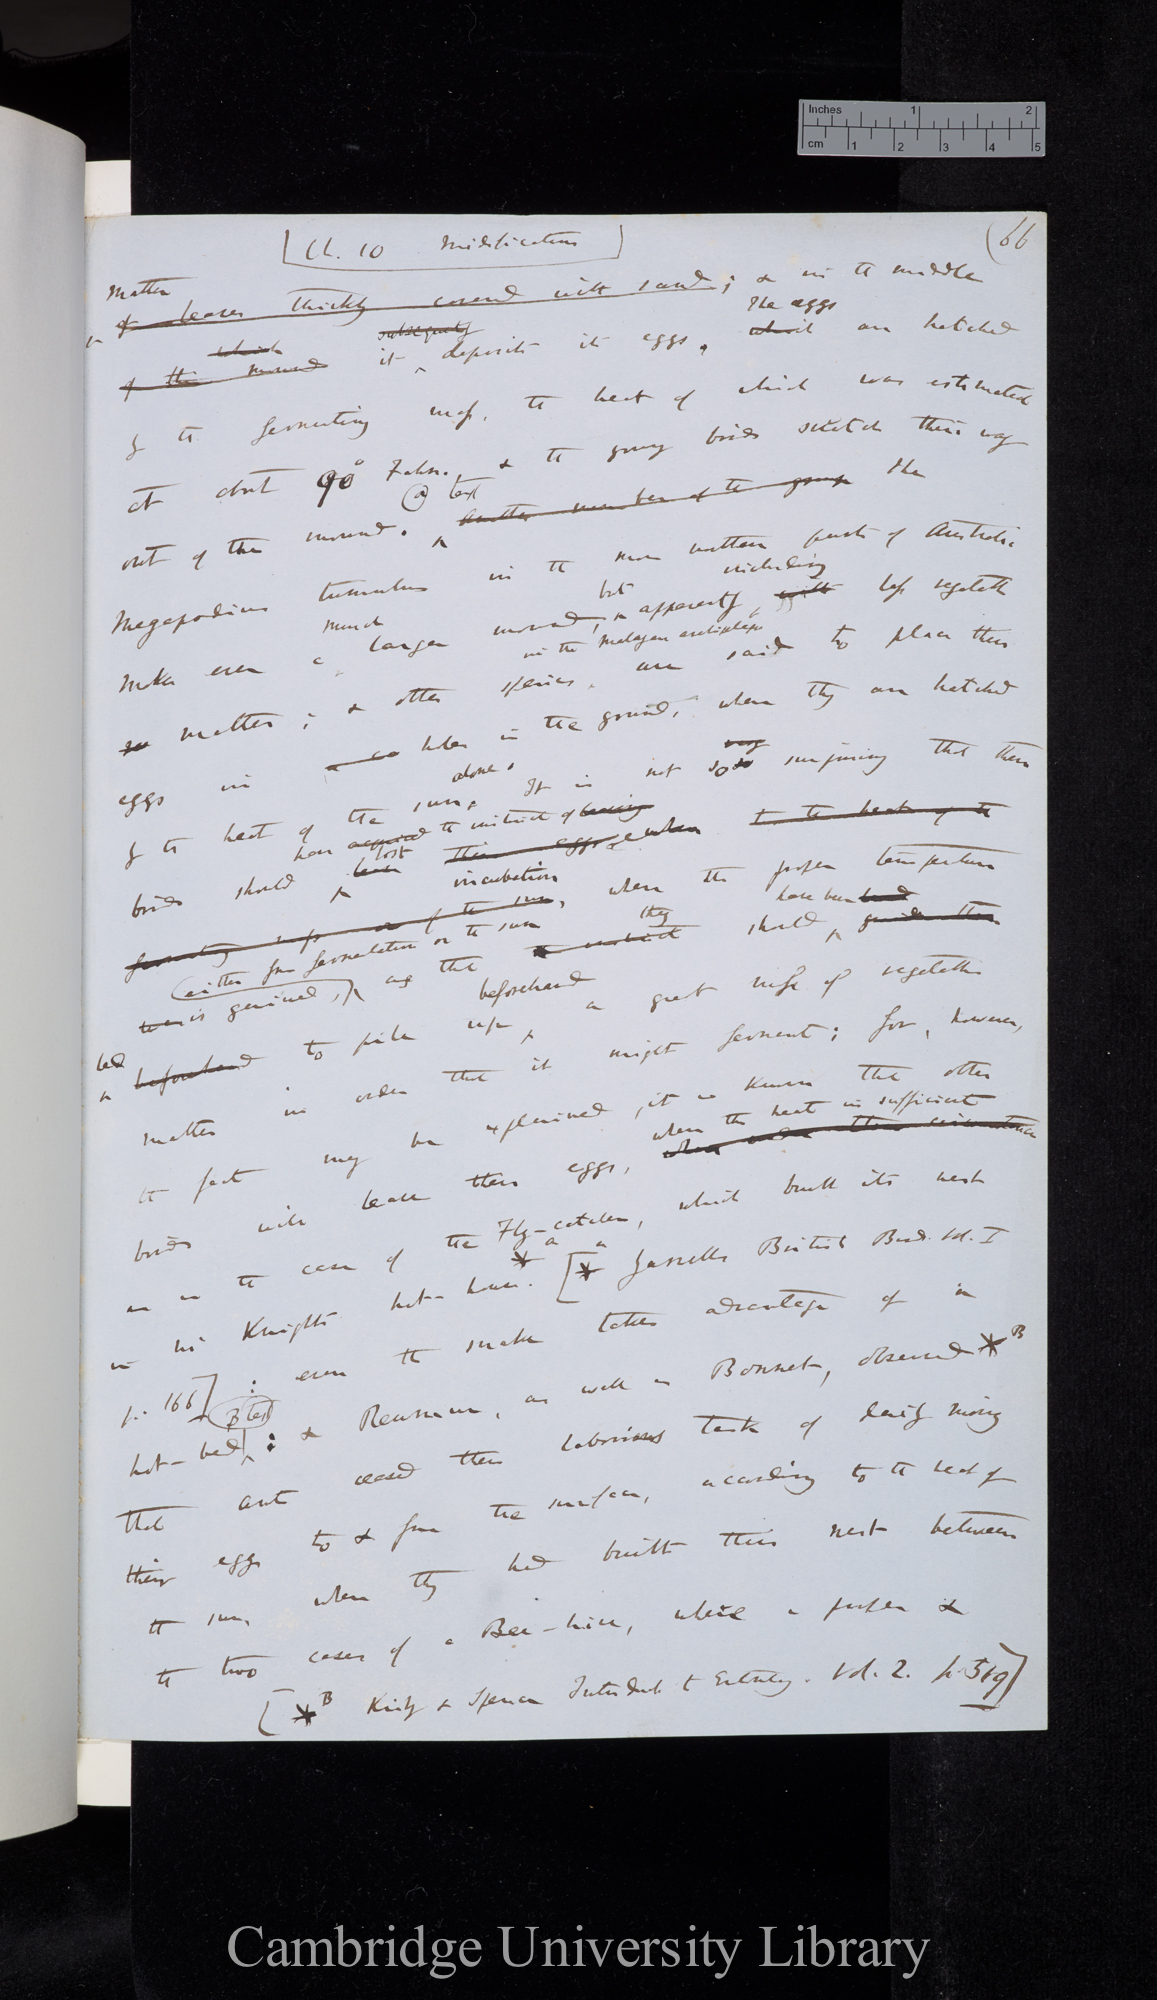 Inches 1 2
cm 1 2 3 4 5
Ch. 10 Nidification
(66
matter
& leaves thickly covered with sand; & in the middle
which subsequently The eggs
of this mound it deposits its eggs, which are hatched
by the fermenting mass, the heat of which was estimated
at about 90° Fahr., & the young birds scratch their way
(a) text
out of the mound. Another member of the group the
Megapodius tumulus in the more northern parts of Australia
much but including
makes even a larger mound, apparently with less vegetable
in the Malayan archipelago
matter; & other species are said to place their
eggs in holes in the ground, where they are hatched
alone. very
by the heat of the sun. It is not so surprising that these
have acquired the instinct of leaving
lost
birds should their eggs when to the heat of the
incubation
fermenting mass or of the sun, when the proper temperature
either from fermentation or the sun they have been
is gained, as that the instinct should guide them
beforehand
led
beforehand to pile up a great mass of vegetable
matter in order that it might ferment; for, however,
the fact may be explained, it is known that other
when the heat is sufficient
birds will leave their eggs, when under these circumstances
as in the case of the Fly-catcher, which built its nest
in Mr Knight's hot-house. [*a Yarrell's British Birds. Vol. I
p. 166] : even the snake takes advantage of a
(B text)
hot-bed; & Reaumur, as well as Bonnet, observed *B
that ants ceased their laborious task of daily moving
their eggs to & from the surface, according to the heat of
the sun, when they had built their nest between
the two cases of a Bee-hive, where a proper &
[*B Kirby & Spence Introduct to Entomology. Vol. 2. p. 519]
Cambridge University Library